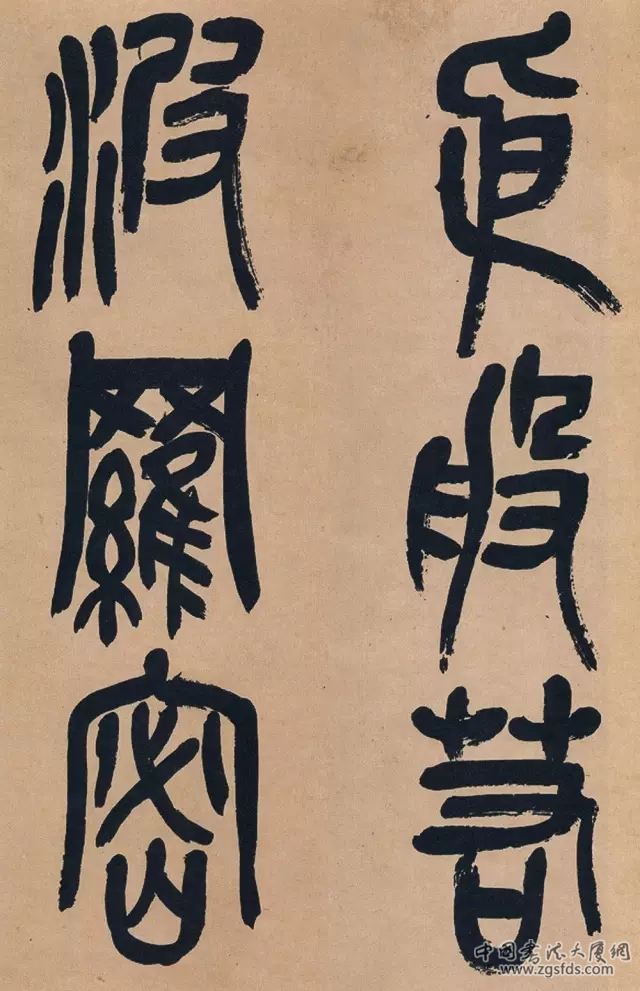 般若
波羅密
中國書法大厦網
www.zgsfds.com